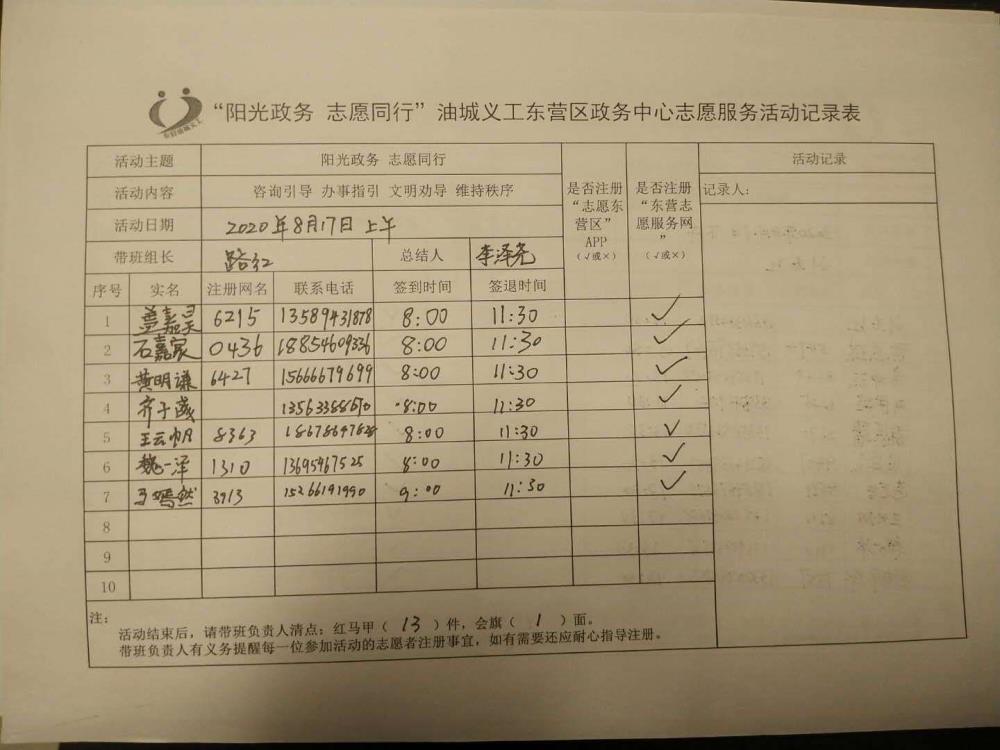 “阳光政务 志愿同行”油城义工东营区政务中心志愿服务活动记录表
活动主题 阳光政务 志愿同行 是否注册“志愿东营区”APP（√或×） 是否注册“东营志愿服务网”（√或×） 活动记录
活动内容 咨询引导 办事指引 文明劝导 维持秩序 记录人：
活动日期 2020年8月17日上午
带班组长 路红 总结人 李泽尧
序号 实名 注册网名 联系电话 签到时间 签退时间
1 嘉昊 6215 13589431878 8:00 11:30 ✓
2 石嘉家 0436 18854609336 8:00 11:30 ✓
3 黄明谦 6427 15666679699 8:00 11:30 ✓
4 齐子 8:00 11:30 ✓
5 王云帆 8363 8:00 11:30 ✓
6 魏一泽 1310 13695467525 8:00 11:30 ✓
7 马嫣然 3913 15266191990 9:00 11:30 ✓
8
9
10
注：
活动结束后，请带班负责人清点：红马甲（13）件，会旗（1）面。
带班负责人有义务提醒每一位参加活动的志愿者注册事宜，如有需要还应耐心指导注册。